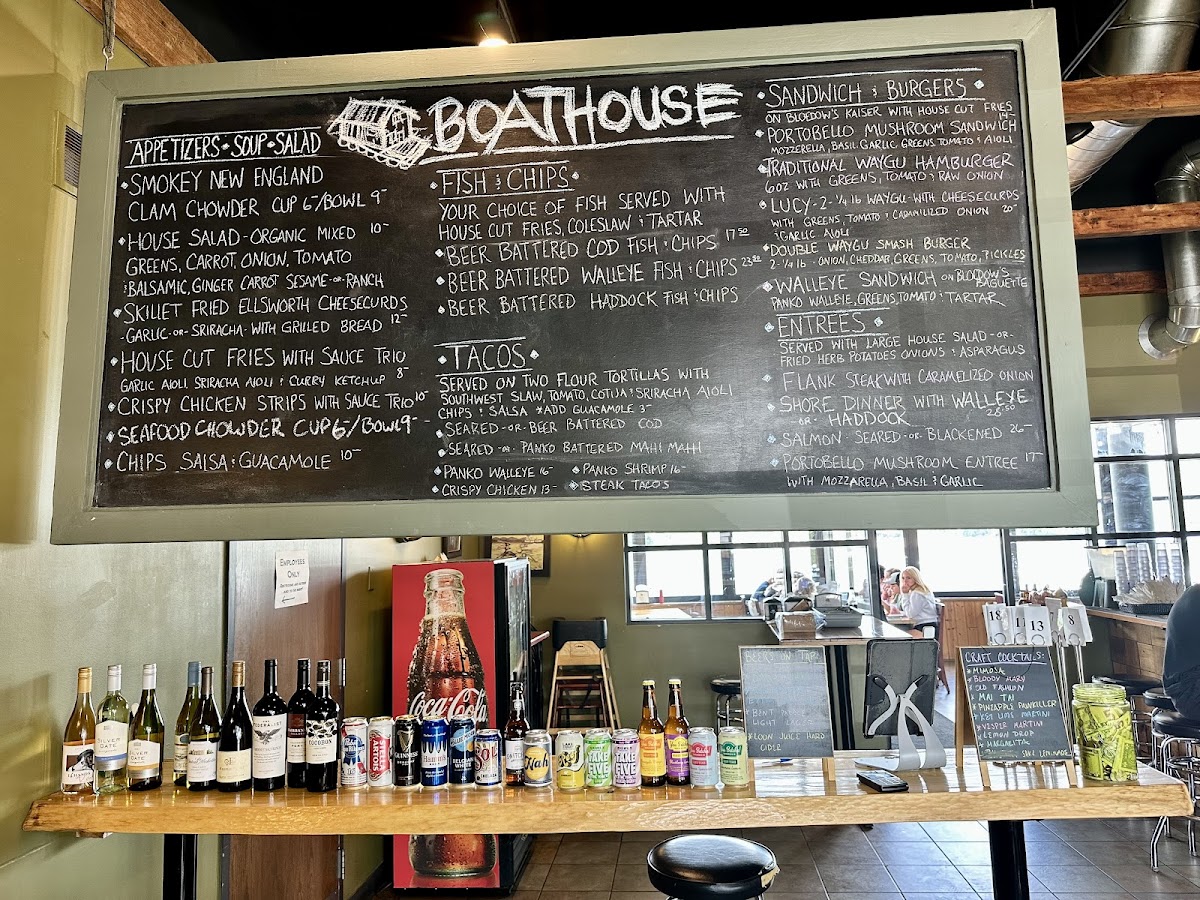 BOATHOUSE
APPETIZERS • SOUP • SALAD
• SMOKEY NEW ENGLAND
CLAM CHOWDER CUP 6-/BOWL 9-
• HOUSE SALAD - ORGANIC MIXED 10-
GREENS, CARROT, ONION, TOMATO
BALSAMIC, GINGER CARROT SESAME -OR- RANCH
• SKILLET FRIED ELLSWORTH CHEESECURDS
GARLIC -OR- SRIRACHA - WITH GRILLED BREAD 12-
• HOUSE CUT FRIES WITH SAUCE TRIO
GARLIC AIOLI, SRIRACHA AIOLI & CURRY KETCHUP 8-
• CRISPY CHICKEN STRIPS WITH SAUCE TRIO 10-
• SEAFOOD CHOWDER CUP 6-/BOWL 9-
• CHIPS SALSA & GUACAMOLE 10-
FISH & CHIPS
YOUR CHOICE OF FISH SERVED WITH
HOUSE CUT FRIES, COLESLAW & TARTAR
• BEER BATTERED COD FISH & CHIPS 17 50
• BEER BATTERED WALLEYE FISH & CHIPS
• BEER BATTERED HADDOCK FISH & CHIPS
TACOS
SERVED ON TWO FLOUR TORTILLAS WITH
SOUTHWEST SLAW, TOMATO, COTIJA & SRIRACHA AIOLI
CHIPS & SALSA *ADD GUACAMOLE 3-
• SEARED -OR- BEER BATTERED COD
• SEARED -OR- PANKO BATTERED MAHI MAHI
• PANKO WALLEYE 16- • PANKO SHRIMP 16-
• CRISPY CHICKEN 13- • STEAK TACOS
• SANDWICH & BURGERS •
ON BLOEDOW'S KAISER WITH HOUSE CUT FRIES
• PORTOBELLO MUSHROOM SANDWICH 14-
MOZZERELLA, BASIL GARLIC GREENS TOMATO & AIOLI
• TRADITIONAL WAYGU HAMBURGER
6 OZ WITH GREENS, TOMATO & RAW ONION
• LUCY - 2 - 1/4 lb WAYGU - WITH CHEESECURDS
WITH GREENS, TOMATO & CARANILIZED ONION 20-
& GARLIC AIOLI
• DOUBLE WAYGU SMASH BURGER
2 - 1/4 lb - ONION, CHEDDAR, GREENS, TOMATO, PICKLES
• WALLEYE SANDWICH ON BLOEDOW'S BAGUETTE
PANKO WALLEYE, GREENS, TOMATO & TARTAR
ENTREES
SERVED WITH LARGE HOUSE SALAD -OR-
FRIED HERB POTATOES ONIONS & ASPARAGUS
• FLANK STEAK WITH CARAMELIZED ONION
• SHORE DINNER WITH WALLEYE
-OR- HADDOCK 28.50
• SALMON SEARED -OR- BLACKENED 26-
• PORTOBELLO MUSHROOM ENTREE 17-
WITH MOZZARELLA, BASIL & GARLIC
EMPLOYEES
ONLY
Coca-Cola
18 11 13 8
BEERS ON TAP:
LIGHT
LOON JUICE HARD
CIDER
CRAFT COCKTAILS:
* MIMOSA
* BLOODY MARY
* OLD FASHION
MAI TAI
* PINEAPPLE PAINKILLER
* KEY LIME MARTINI
* VESPER MARTINI
* LEMON DROP
* MARGARITA
SILVER GATE
SILVER GATE
FEDERALIST
BOURBON
COCOBON
Pabst
GUINNESS
Hamm's
BELGIAN WHITE
SOL
Nah
TAKE FIVE
TAKE FIVE